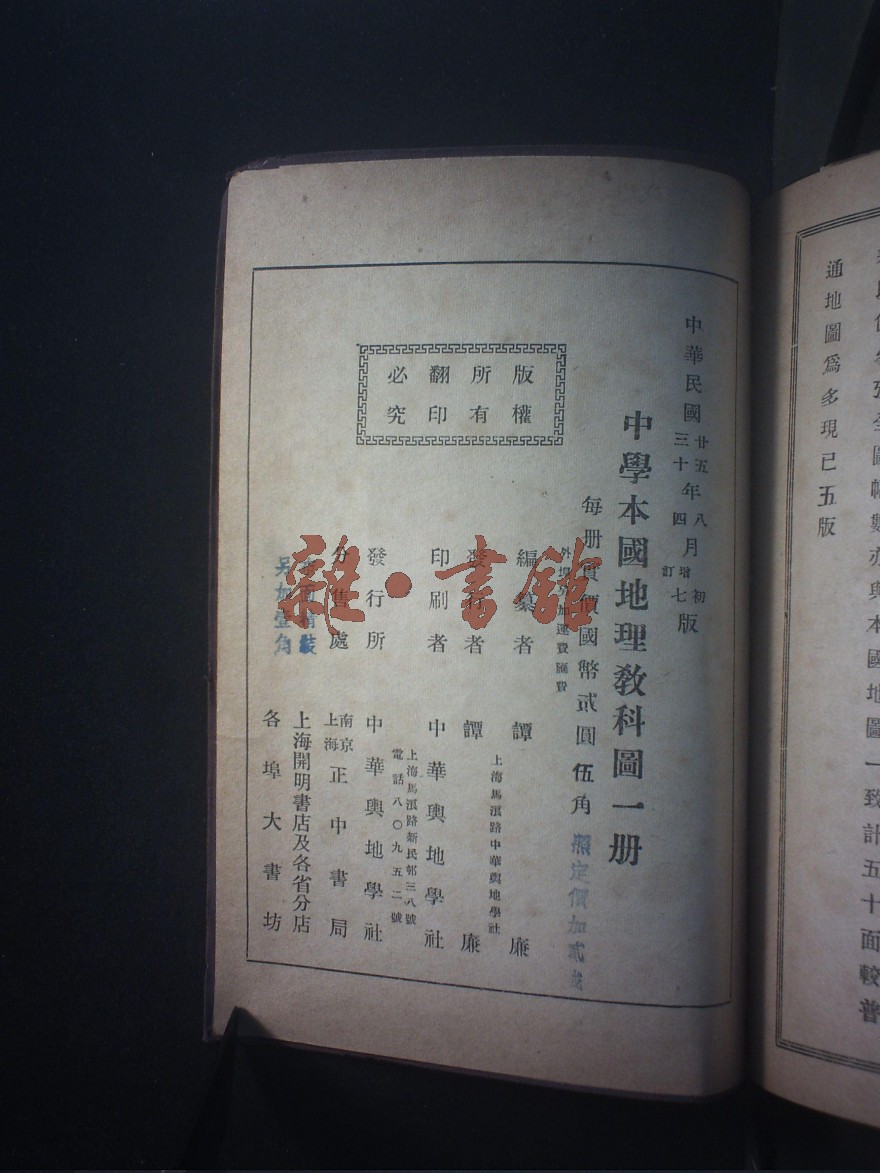 通地圖爲多現已五版
全圖幅數亦與本國地圖一致計五十面較普
中華民國廿五年八月初版
三十年四月增訂七版
中學本國地理敎科圖一册
每册實價國幣貳圓伍角
照定價加貳
外埠另加運費匯費
版權所有
翻印必究
編纂者 譚廉
上海馬浪路中華輿地學社
發行者 譚廉
印刷者 中華輿地學社
發行所 中華輿地學社
上海馬浪路新民邨三八號
電話八〇九五二號
分售處 南京上海正中書局
上海開明書店及各省分店
各埠大書坊
面精裝
另加壹角
雜·書館